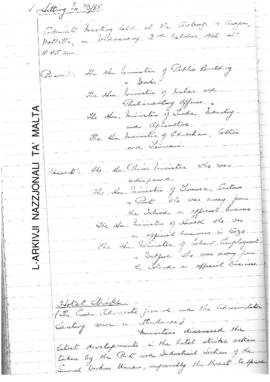 Sitting No. 
Cabinet Meeting held at the Auberge d'Aragon,
Valletta, on Wednesday, 2nd October, 1968 at
Present: The Hon. Minister of Public Building
and Works.
The Hon. Minister of Justice and
Parliamentary Affairs.
The Hon. Minister of Trade, Industry
and Agriculture.
The Hon. Minister of Education, Culture
and Tourism.
Absent: The Hon. Prime Minister who was
indisposed.
The Hon. Minister of Finance, Customs
& Port who was away from
the Islands on official business
The Hon. Minister of Health who was
on official business in
The Hon. Minister of Labour, Employment
& Welfare who was away from
the Islands on official business
L-ARKIVJI NAZZJONALI TA' MALTA
Hotel Strike
(The Crown Advocate General and the Administrative
Secretary were in attendance)
Ministers discussed the
latest developments in the hotel strike action
taken by the Port and Industrial Section of the
General Workers Union, especially the threat to